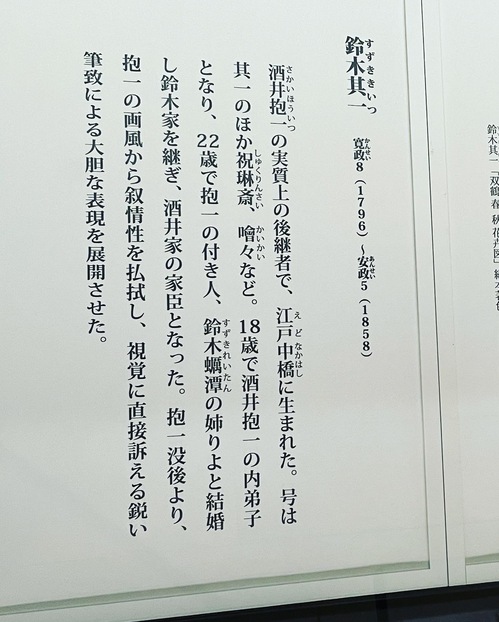 鈴木其一 寛政8（1796）〜安政5（1858）
すずききいつ かんせい あんせい
酒井抱一の実質上の後継者で、江戸中橋に生まれた。号は
さかいほういつ えどなかはし
其一のほか祝琳斎、噲々など。18歳で酒井抱一の内弟子
しゅくりんさい かいかい
となり、22歳で抱一の付き人、鈴木蠣潭の姉りよと結婚
すずきれいたん
し鈴木家を継ぎ、酒井家の家臣となった。抱一没後より、
抱一の画風から叙情性を払拭し、視覚に直接訴える鋭い
筆致による大胆な表現を展開させた。
鈴木其一「双鶴 春秋花卉図」